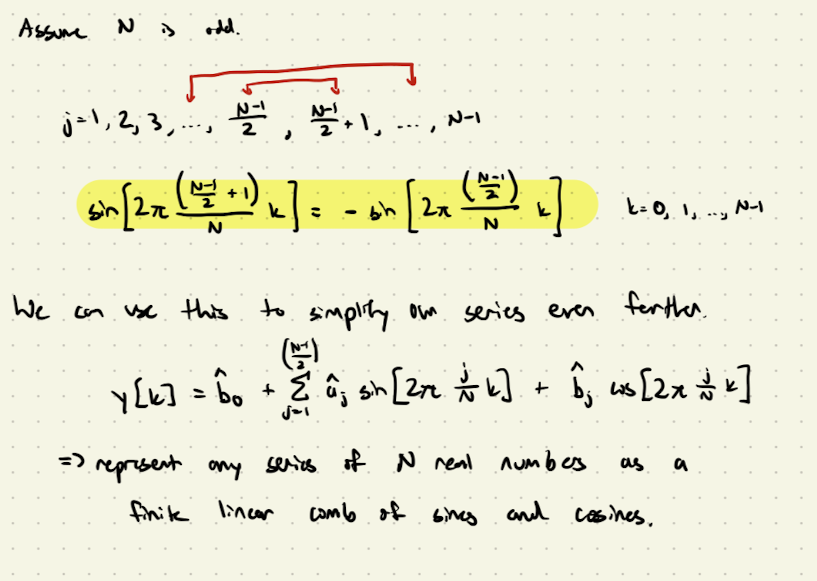 Assume N is odd.
j=1, 2, 3, ..., (N-1)/2, (N-1)/2 + 1, ..., N-1
sin[2π ((N-1)/2 + 1)/N k] = - sin[2π ((N-1)/2)/N k] k=0, 1, ..., N-1
We can use this to simplify our series even further.
y[k] = b̂₀ + Σ_{j=1}^{((N-1)/2)} â_j sin[2π j/N k] + b̂_j cos[2π j/N k]
=> represent any series of N real numbers as a
finite linear comb of sines and cosines.